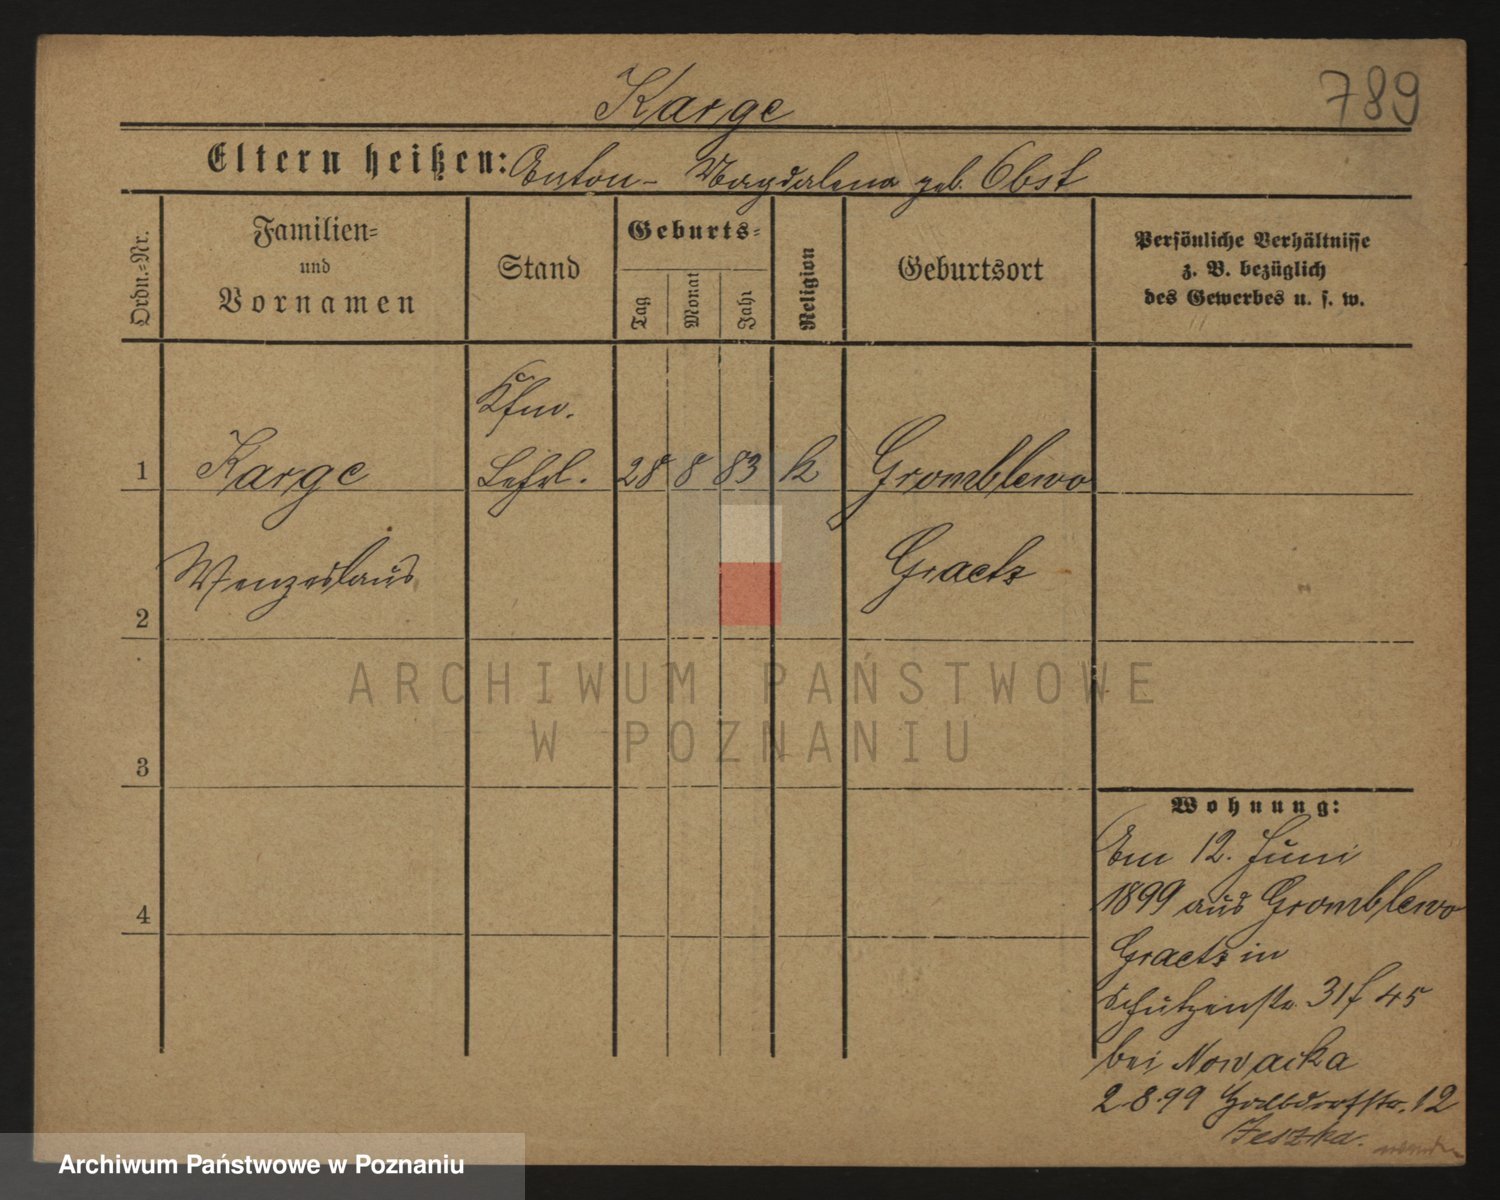 789
Karge
Eltern heißen: Anton - Magdalena geb. Obst
Ordn.=Nr.
Familien=
und
Vornamen
Stand
Geburts=
Tag
Monat
Jahr
Religion
Geburtsort
Persönliche Verhältnisse
z. B. bezüglich
des Gewerbes u. s. w.
Kfm.
1 Karge Lehrl. 28 8 83 k Gromblewo
Wenzeslaus Graetz
2
ARCHIWUM PAŃSTWOWE
W POZNANIU
3
Wohnung:
Am 12. Juni
1899 aus Gromblewo
4
Graetz in
Schützenstr. 31 f 45
bei Nowacka
2.8.99 Halbdorfstr. 12
Jeszka.
Archiwum Państwowe w Poznaniu